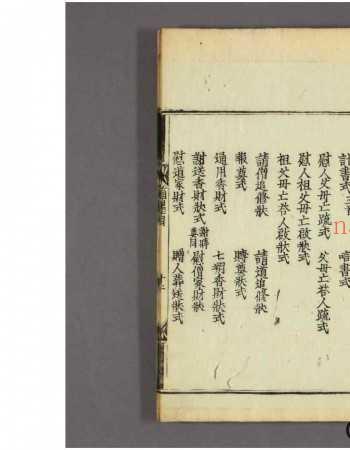 書式
慰人父母亡疏式　父母亡答人疏式
慰人祖父母亡啟狀式
祖父母亡答人啟狀式
請僧追修狀　請道追修狀
報奠式　賻奠狀式
通用香財式　七朝香財狀式
謝送香財狀式　慰僧家財狀式
慰道家財式　贈人葬送狀式